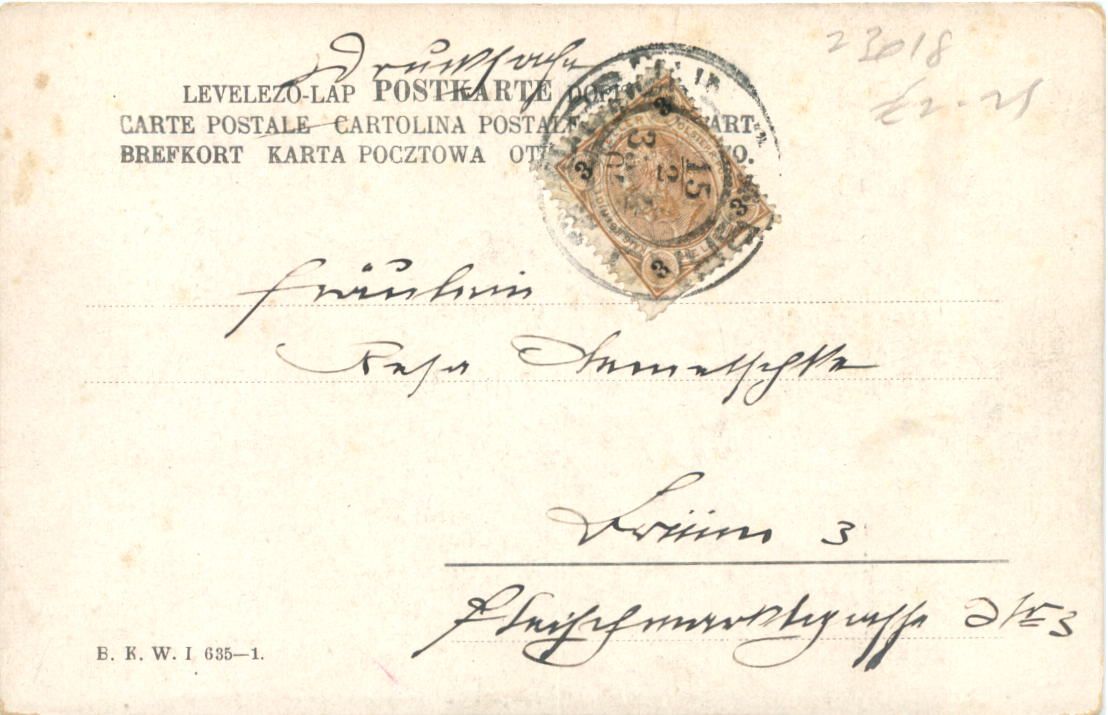 Drucksache
23018
£2-25
LEVELEZŐ-LAP POSTKARTE DOPI
CARTE POSTALE CARTOLINA POSTALE KART
BREFKORT KARTA POCZTOWA
3 3 3 3
15
3
Fräulein
Resa
Brünn 3
Fleischmarktgasse Nr 3
B. K. W. I 635—1.